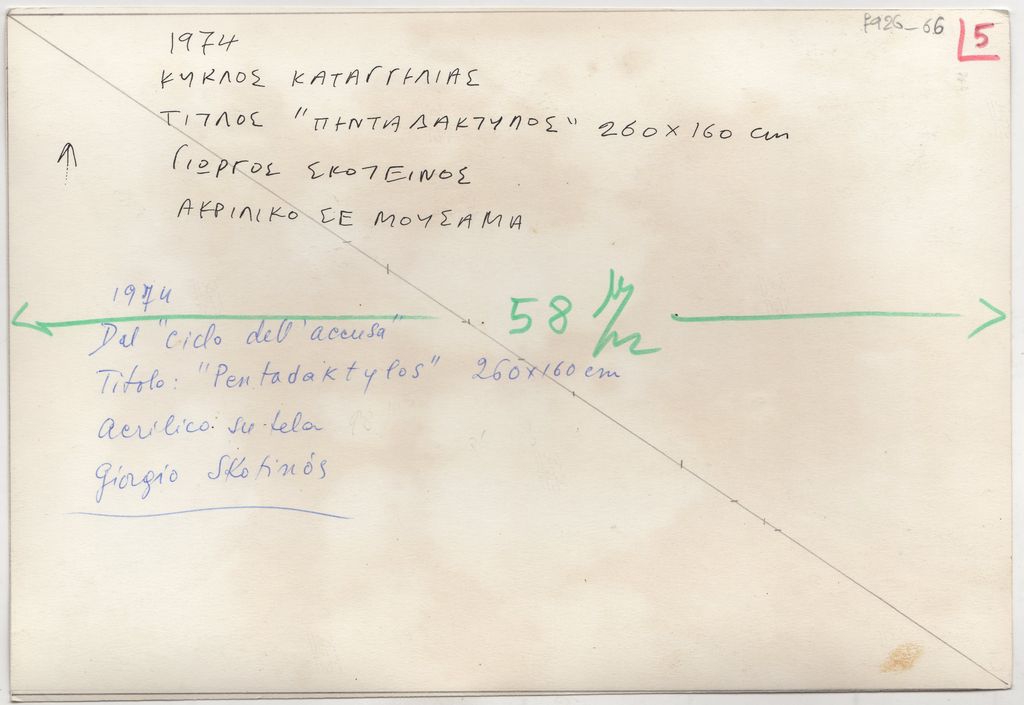 7926-66
5
1974
ΚΥΚΛΟΣ ΚΑΤΑΓΓΗΛΙΑΣ
ΤΙΤΛΟΣ "ΠΗΝΤΑΔΑΚΤΥΛΟΣ" 260 x 160 cm
ΓΙΩΡΓΟΣ ΣΚΟΤΕΙΝΟΣ
ΑΚΡΙΛΙΚΟ ΣΕ ΜΟΥΣΑΜΑ
1974
58
Dal "ciclo dell'accusa"
Titolo: "Pentadaktylos" 260x160 cm
Acrilico su tela
Giorgio Skotinós